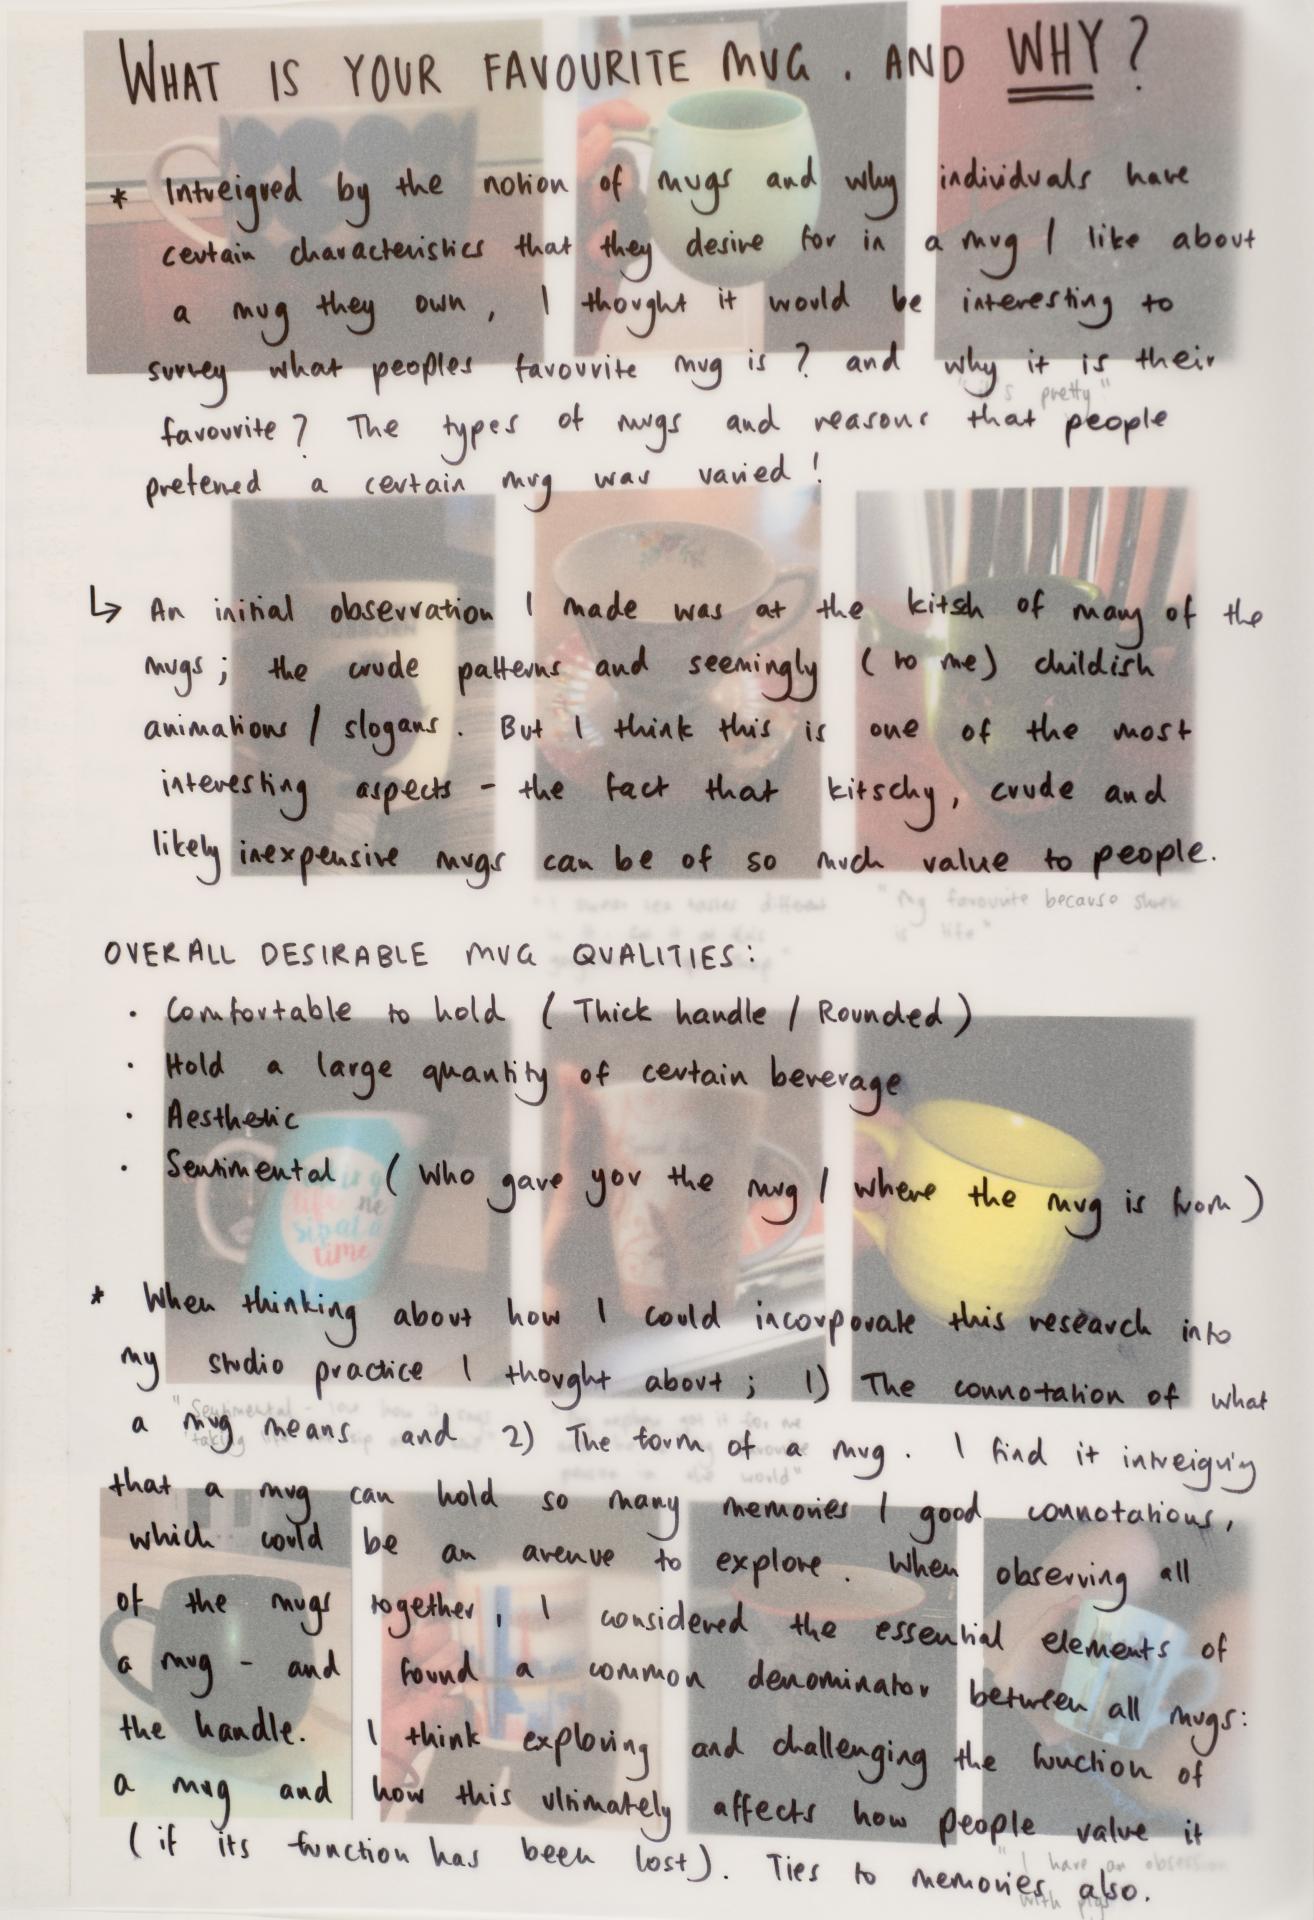 WHAT IS YOUR FAVOURITE MUG. AND WHY?
* Intreigred by the notion of mugs and why individuals have
certain characteristics that they desire for in a mug / like about
a mug they own, I thought it would be interesting to
survey what peoples favourite mug is? and why it is their
"it's pretty"
favourite? The types of mugs and reasons that people
preferred a certain mug was varied!
↳ An initial observation I made was at the kitsh of many of the
mugs; the crude patterns and seemingly (to me) childish
animations / slogans. But I think this is one of the most
interesting aspects - the fact that kitschy, crude and
likely inexpensive mugs can be of so much value to people.
"I swear tea tastes different
"My favourite because
in it.
is life"
OVERALL DESIRABLE MUG QUALITIES:
· Comfortable to hold (Thick handle / Rounded)
· Hold a large quantity of certain beverage
· Aesthetic
· Sentimental (Who gave you the mug / where the mug is from)
life
sip at a
time
* When thinking about how I could incorporate this research into
my studio practice I thought about; 1) The connotation of what
"Sentimental - love how it says
got it for me
a mug means and 2) The form of a mug. I find it intreiguing
person in the world"
that a mug can hold so many memories / good connotations,
which could be an avenue to explore. When observing all
of the mugs together, I considered the essential elements of
a mug - and found a common denominator between all mugs:
the handle. I think exploring and challenging the function of
a mug and how this ultimately affects how people value it
(if its function has been lost). Ties to memories also.
"I have an obsession
with pigs"